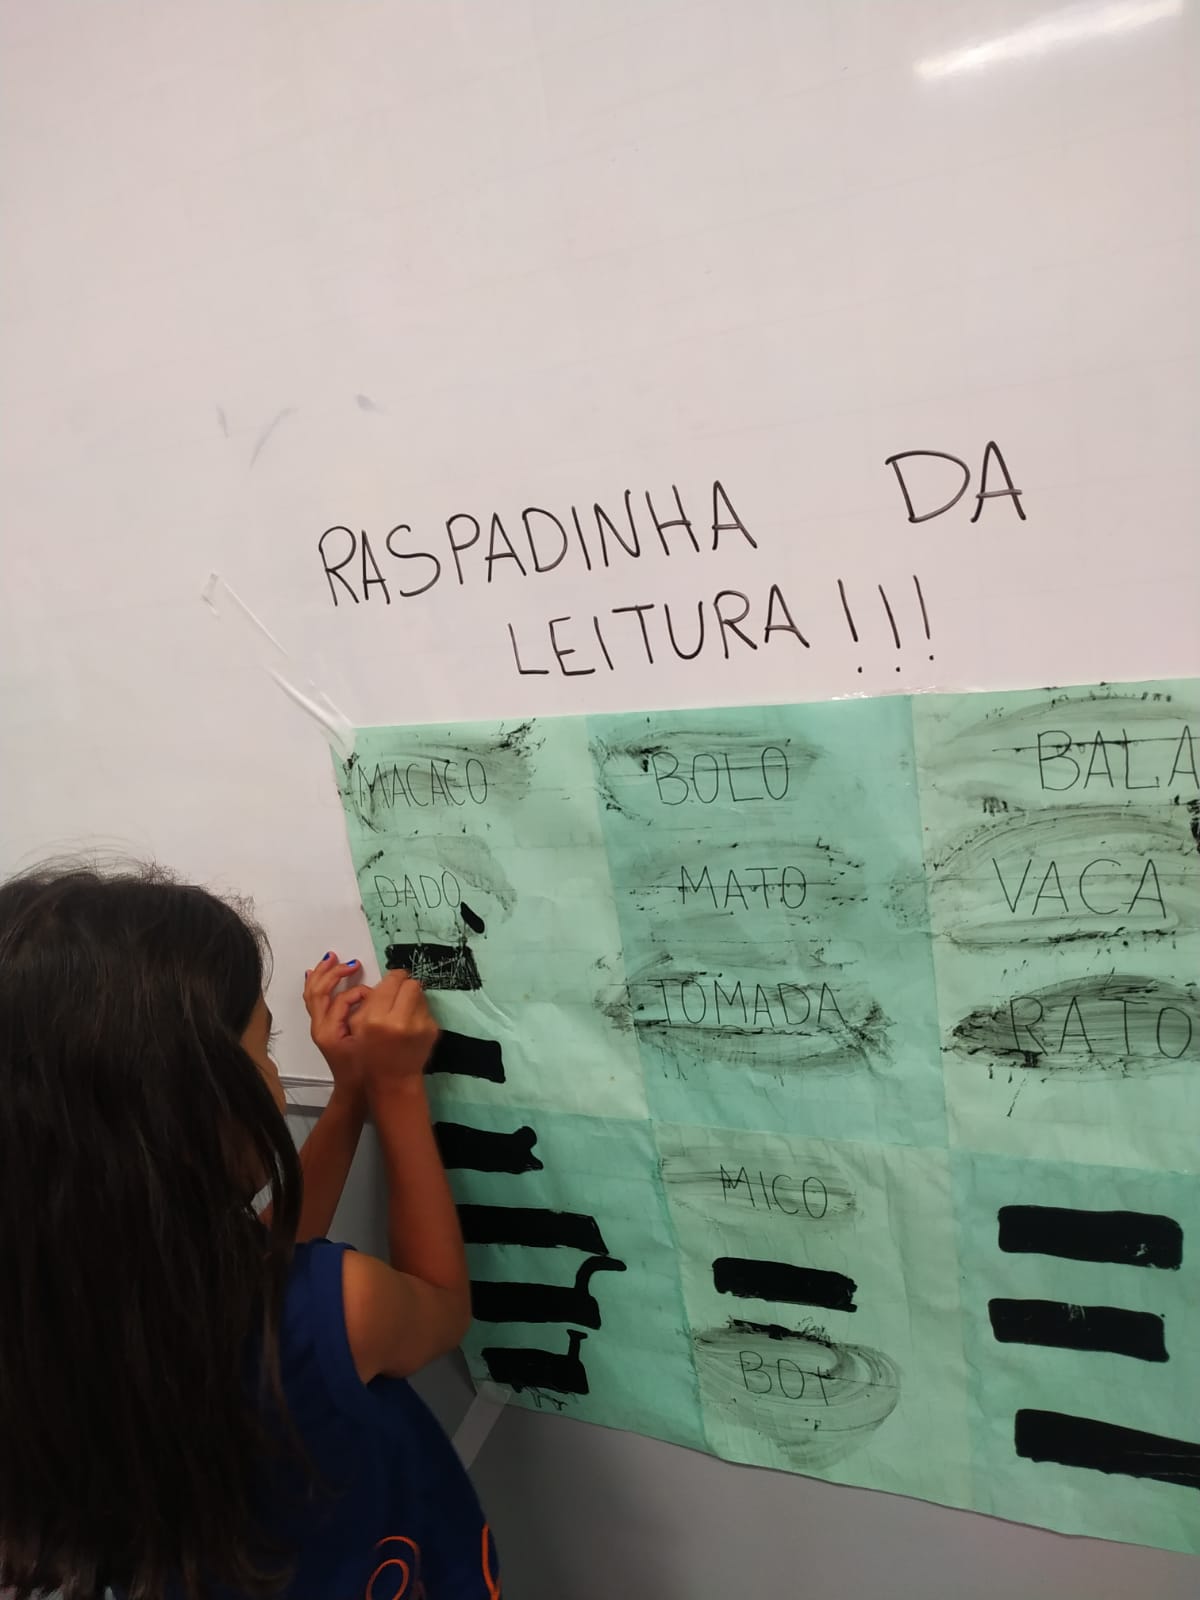 RASPADINHA DA
LEITURA!!!
MACACO BOLO BALA
DADO MATO VACA
TOMADA RATO
MICO
BOI